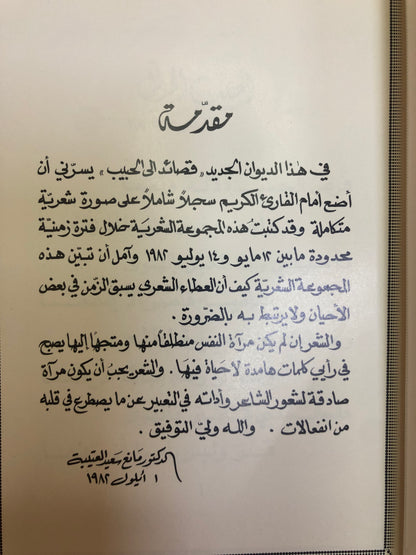 مقدّمة
في هذا الديوان الجديد «قصائد الى الحبيب» يسرّني أن
أضع أمام القارئ الكريم سجلاً شاملاً على صورة شعريّة
متكاملة وقد كتبتُ هذه المجموعة الشعرية خلال فترة زمنيّة
محدودة مابين ١٢ مايو و١٤ يوليو ١٩٨٢ وآمل أن تبيّن هذه
المجموعة الشعريّة كيف أن العطاء الشعري يسبق الزّمن في بعض
الأحيان ولا يرتبط به بالضّرورة .
والشعر ان لم يكن مرآة النفس منطلقاً منها ومتجهاً إليها يصبح
في رأيي كلمات هامدة لا حياة فيها . والشعر يجب أن يكون مرآة
صادقة لشعور الشاعر وأداته في التعبير عن ما يصطرع في قلبه
من انفعالات . والله وليّ التوفيق .
الدكتور مانع سعيد العتيبة
١ أيلول ١٩٨٢